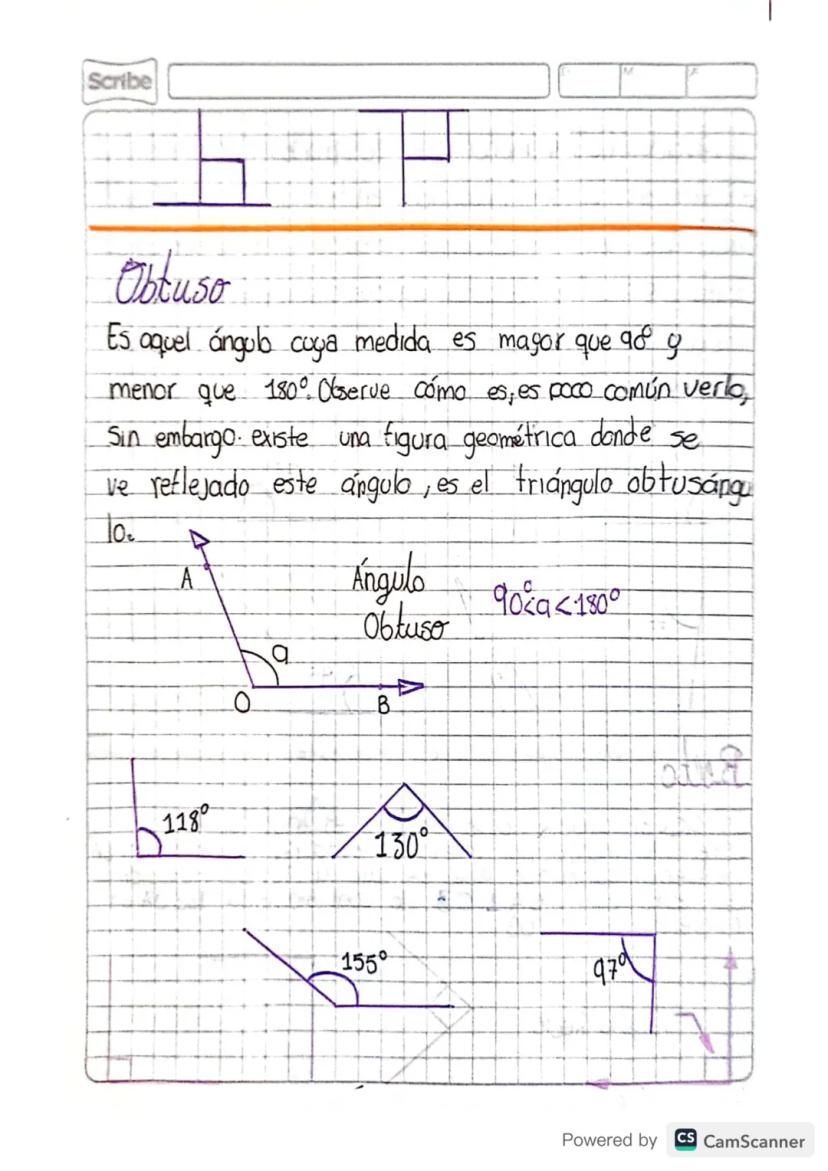 Scribe
Obtuso
Es aquel ángulo cuya medida es mayor que 90° y
menor que 180°. Observe cómo es, es poco común verlo,
Sin embargo. existe una figura geométrica donde se
ve reflejado este ángulo, es el triángulo obtusángu
lo.
A
Ángulo
Obtuso
90°<a<180°
a
O
B
118°
130°
155°
97°
Powered by CS CamScanner